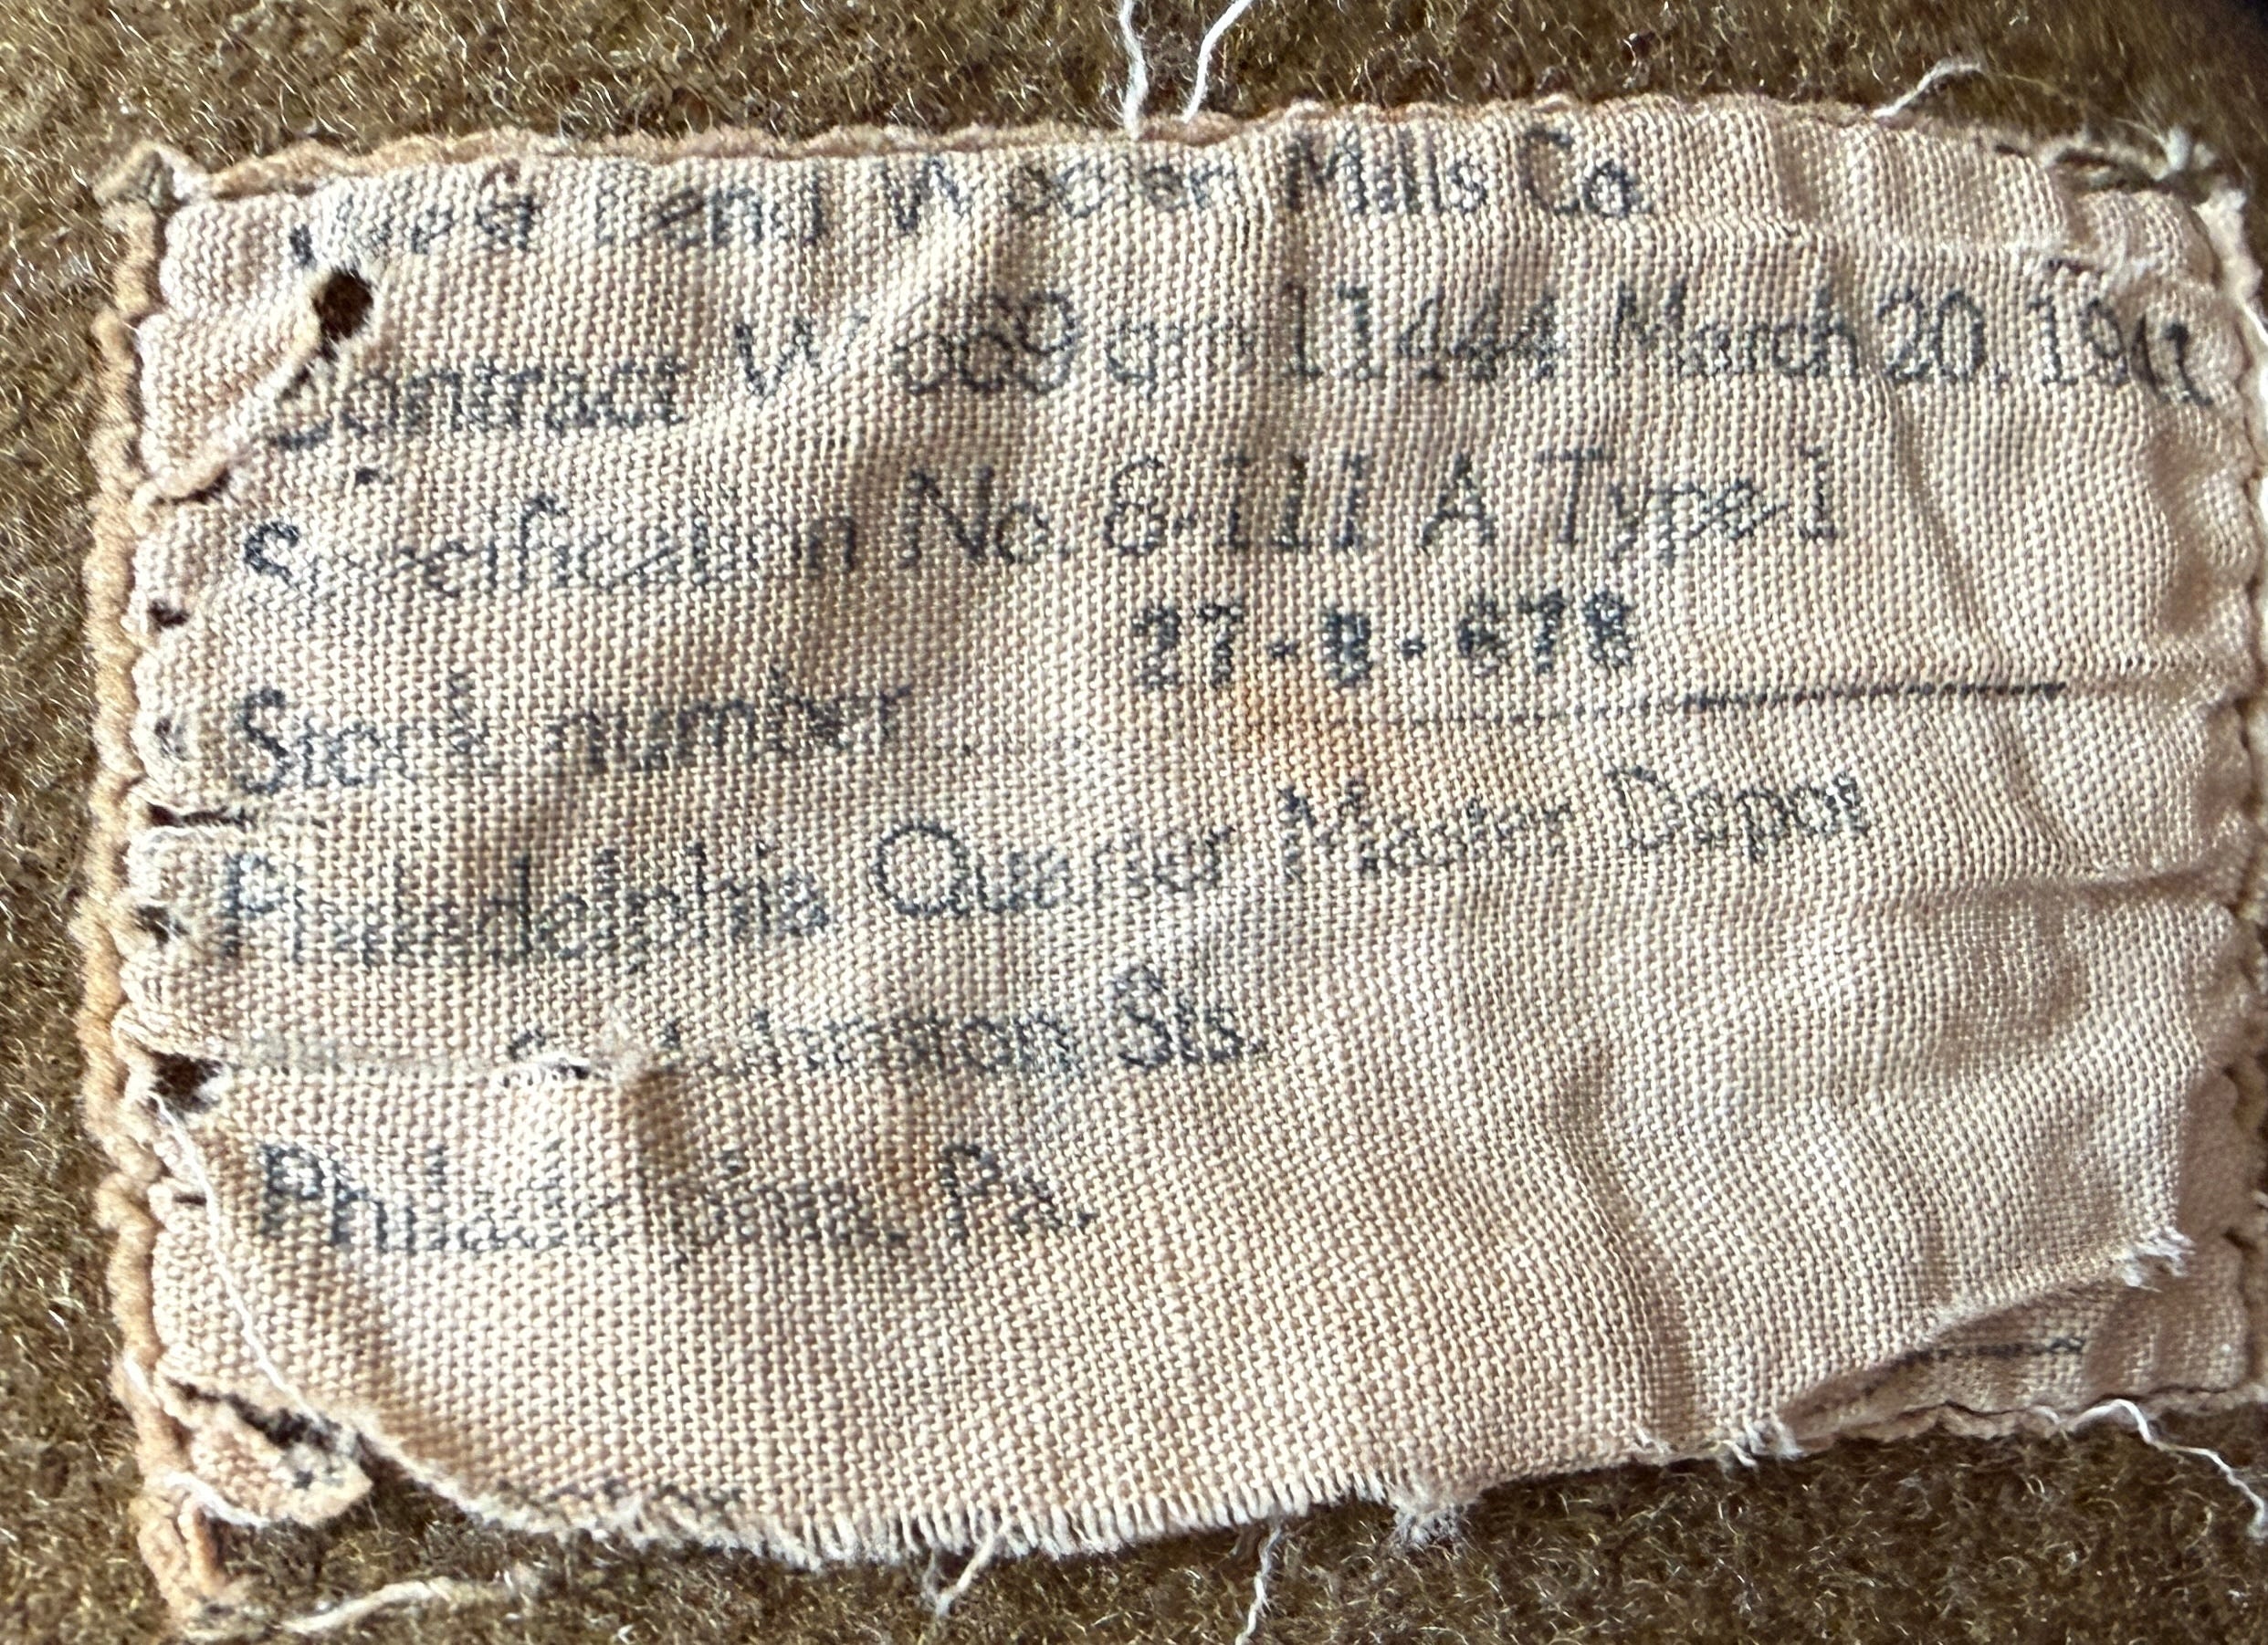 Bend Woolen Mills Co.
Contract W 669 qm 11444 March 20, 1941
Specification No. 8-111 A Type I
Stock number 27-B-678
Philadelphia Quarter Master Depot
Johnson Sts.
Philadelphia, Pa.